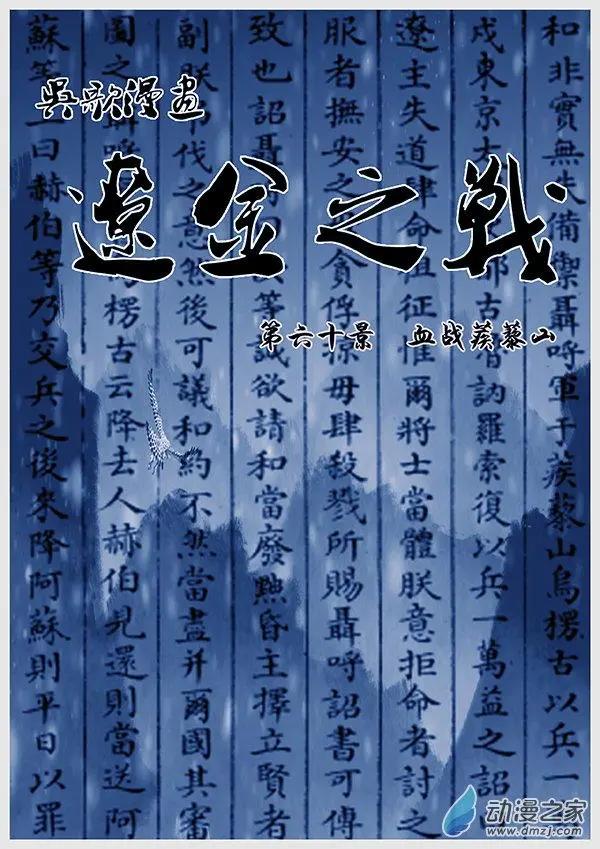 吳歌漫画
遼金之戰
第六十景 血战蒺藜山
和非實無失備禦聶哷軍于蒺藜山烏楞古以兵一
戍東京 古智訥羅索復以兵一萬益之詔
遼主失道肆命徂征惟爾將士當體朕意拒命者討之
服者撫安之毋貪俘掠毋肆殺戮所賜聶哷詔書可傳
致也詔聶哷曰 等誠欲請和當廢黜昏主擇立賢者
副朕弔伐之意然後可議和約不然當盡并爾國其審
圖之 楞古云降去人赫伯見還則當送阿
蘇等 曰赫伯等乃交兵之後來降阿蘇則平日以罪
动漫之家
www.dmzj.com